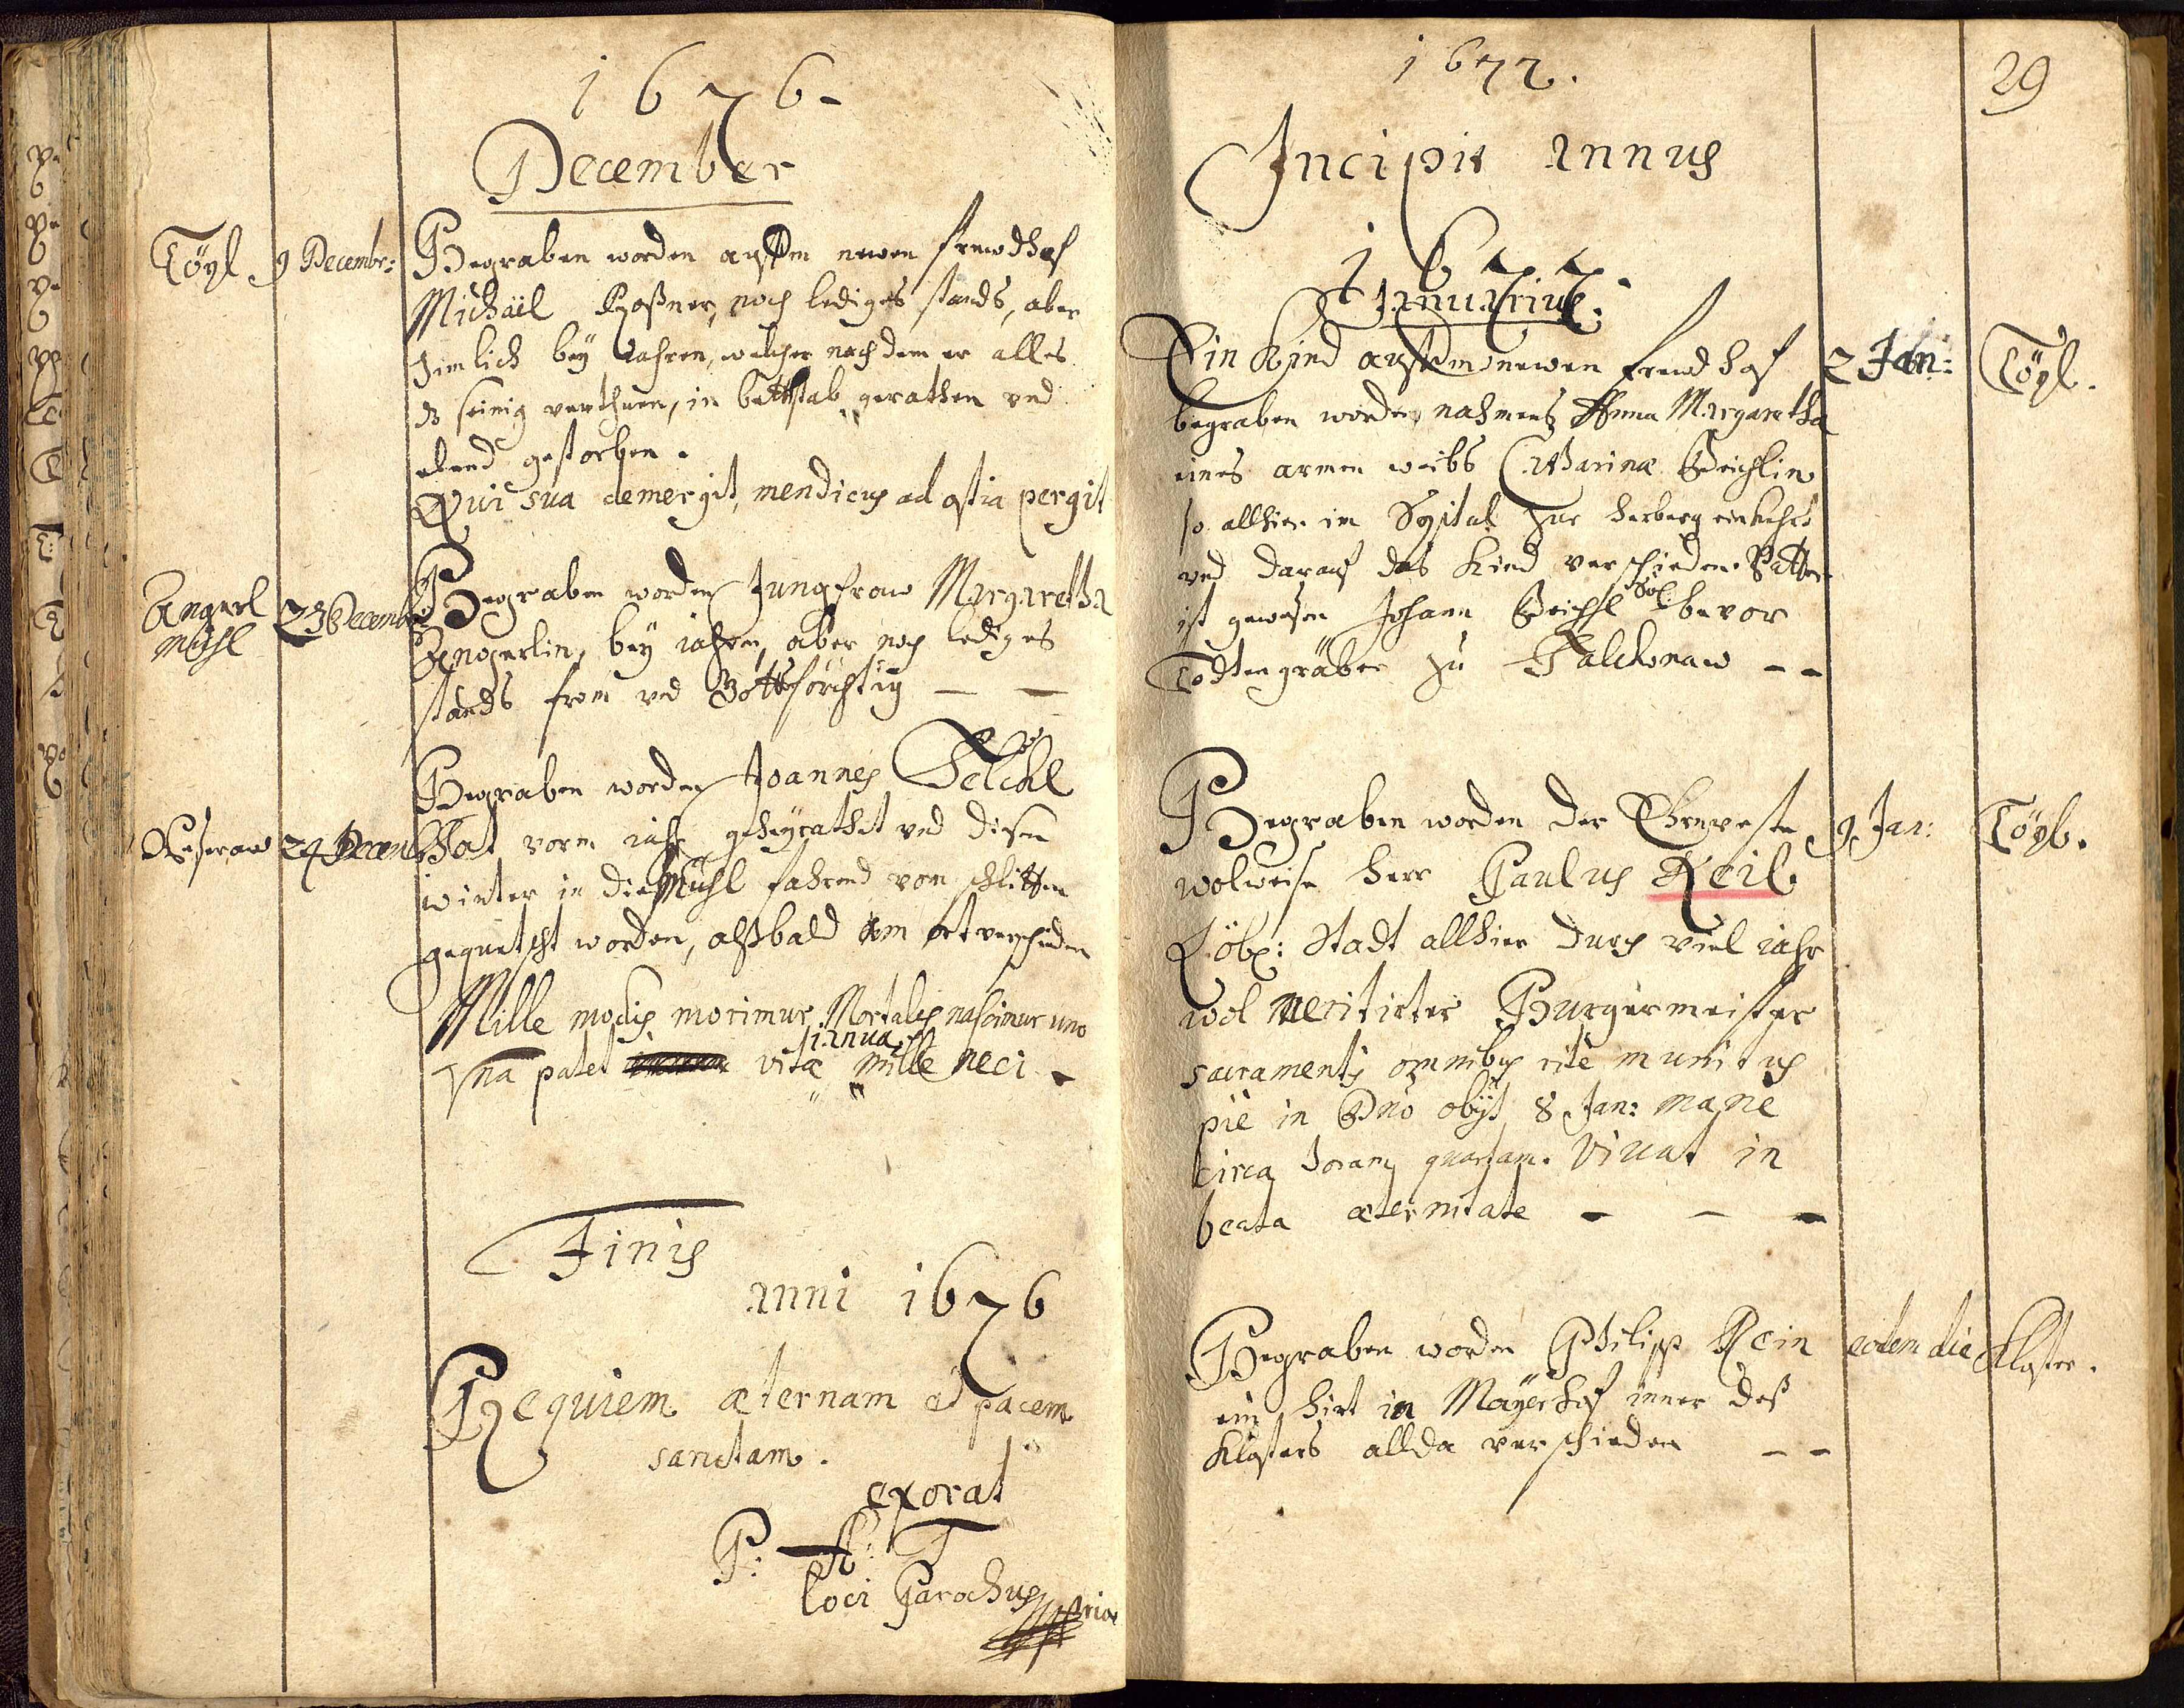 1676.
December
Töpl 9 Decembr: Begraben worden auffm newen freudhof
Michäel Roßner, noch lediges stands, aber
zimlich bey Jahren, welcher nach dem er alles
dz seinig verthuen, in bettlstab gerathen vnd
elend gestorben.
Qui sua demergit, mendicus ad ostia pergit
Angerl
Mühl 23 Decembr: Begraben worden Jungfraw Margaretha
lin, bey jahren, aber noch lediges
stands from vnd Gottsförchtig — —
Begraben worden Joannes
24 Decemb: Hat vorm jahr geheyrathet vnd diesen
winter in die Mühl fahrend vom schlitten
gequetscht worden, alßbald am ort verschieden
Mille modis morimur Mortales nascimur uno
ianua
Vna patet vitæ mille neci -
Finis
anni 1676
Requiem æternam et pacem
sanctam.
exorat
P: A: T
loci Parochus
1677.
29
Incipit annus
1677.
Januarius.
Ein Kind auffm newen freudhof 2 Jan: Töpl.
begraben worden, nahmens Anna Margaretha
eines armen weibs Catharinæ
so allhier im Spital zur herberg einkehrt
vnd darauf das Kind verschieden. Vatter
Söl:
ist gewesen Johann bevor
Todtengräber zu Falckenaw - -
Begraben worden der Ehrnveste 9 Jan: Töpl.
wolweise herr Paulus Keil.
Löbl: Stadt allhier durch viel jahr
wol meritirter Burgermeister
sacramentis omnibus rite munitus
pie in Dño obijt 8 Jan: mane
circa horam quartam. Vivat in
beata æternitate - - -
Begraben worden Philipp Rein eodem die Kloster.
ein hirt in Mayerhof inner deß
Klosters allda verschieden - -